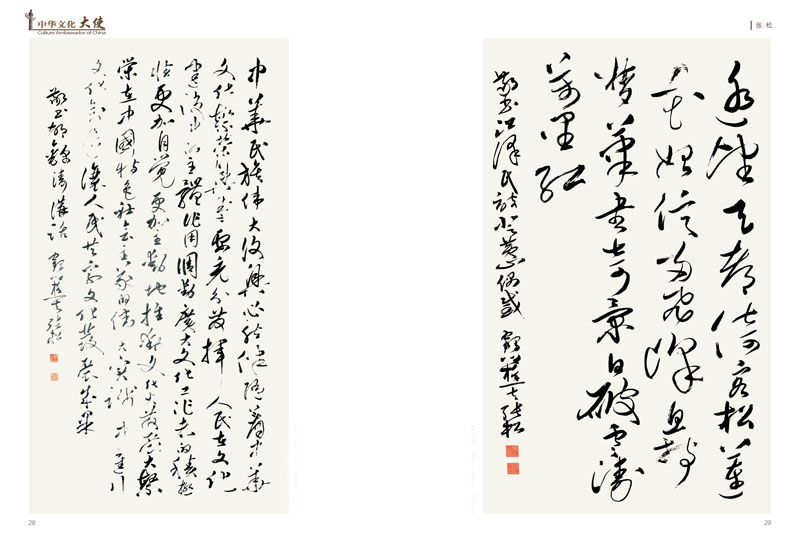 中华文化大使
Culture Ambassador of China
中華民族偉大復興必然伴隨着中華
文化繁榮興盛要充分發揮人民在文化
建設中的主體作用調動廣大文化工作者的積極
性更加自覺更加主動地推動文化大發展大繁
榮在中國特色社會主義的偉大實踐中進行
文化創造讓人民共享文化發展成果
敬书胡錦濤講話 張松
28
张 松
遥望天都倚客松蓮
花始信两飛峰且持
夢筆书奇景日破雲濤
萬里紅
敬书江澤民詩登黄山偶感 張松
29